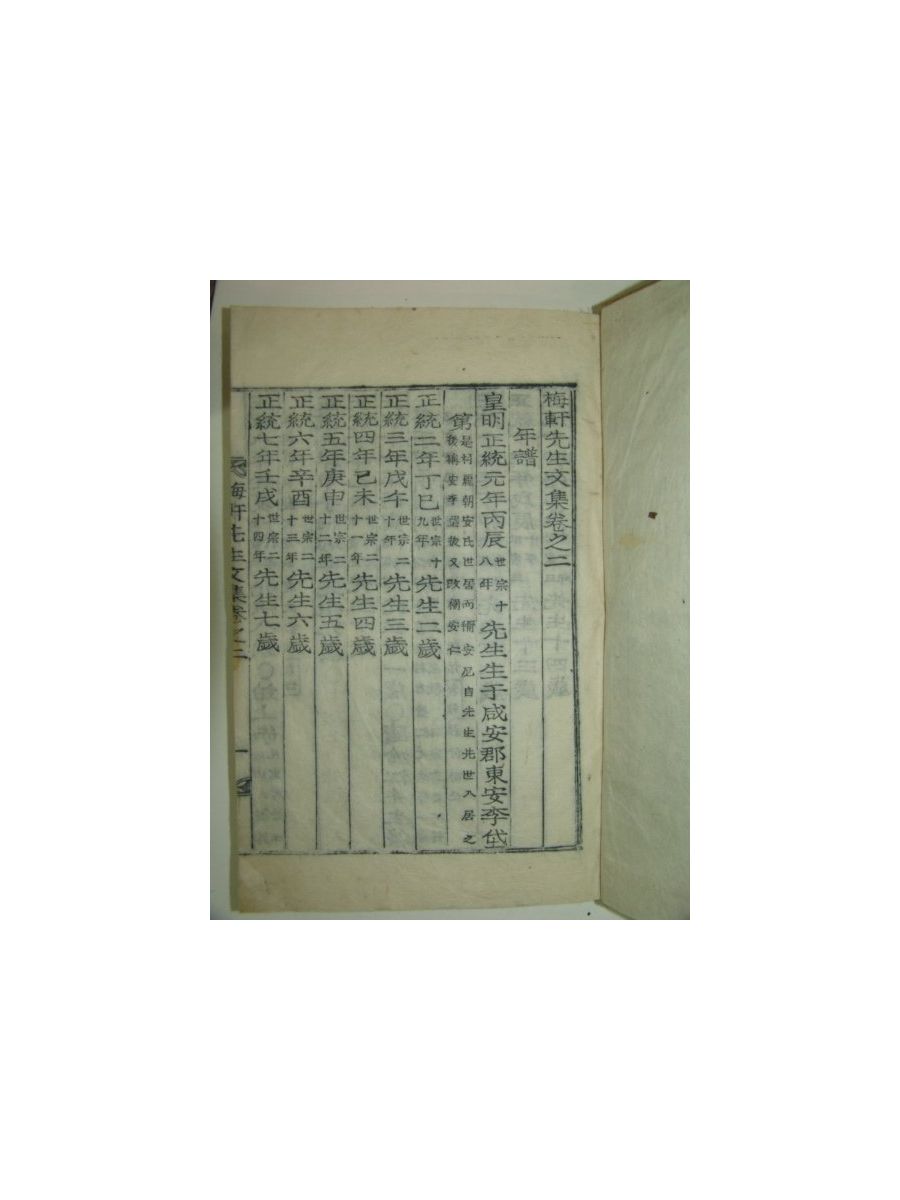 梅軒先生文集卷之二
年譜
皇明正統元年丙辰世宗十八年先生生于咸安郡東安李岱
第是村麗朝安氏世居而稱安尼自先生先世入居之後稱安李後又改稱安仁
正統二年丁巳世宗十九年先生二歲
正統三年戊午世宗二十年先生三歲
正統四年己未世宗二十一年先生四歲
正統五年庚申世宗二十二年先生五歲
正統六年辛酉世宗二十三年先生六歲
正統七年壬戌世宗二十四年先生七歲
梅軒先生文集卷之二 一